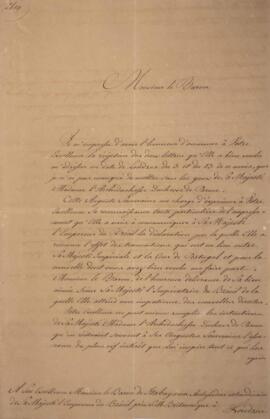 Monsieur le Baron
Je m'empresse d'avoir l'honneur d'annoncer à Votre
Excellence la réception des deux lettres qu'Elle a bien voulu
m'adresser en date de Londres du 3 et du 13 de ce mois, que
je n'ai pas manqué de mettre sous les yeux de Sa Majesté
Madame l'Archiduchesse Duchesse de Parme.
Cette Auguste Souveraine me charge d'exprimer à Votre
Excellence Sa reconnaissance toute particulière de l'empresse-
ment qu'Elle a mis à communiquer à Sa Majesté
l'Empereur du Brésil la déclaration par laquelle Elle a
l'effet des transactions qui ont eu lieu entre
Sa Majesté Impériale et le Roi de Portugal et pour la
nouvelle dont vous avez bien voulu me faire part
Monsieur le Baron, de l'heureuse délivrance de Sa bien
aimée Sœur Sa Majesté l'Impératrice du Brésil de la
quelle Elle attend avec impatience des nouvelles directes.
Votre Excellence ne peut mieux remplir les intentions
de Sa Majesté Madame l'Archiduchesse Duchesse de Parme
qu'en
du plus vif intérêt que lui inspire tout ce qui
A Son Excellence Monsieur le Baron de Itabayana
de Sa Majesté l'Empereur du Brésil près S. M. Britannique à
Londres